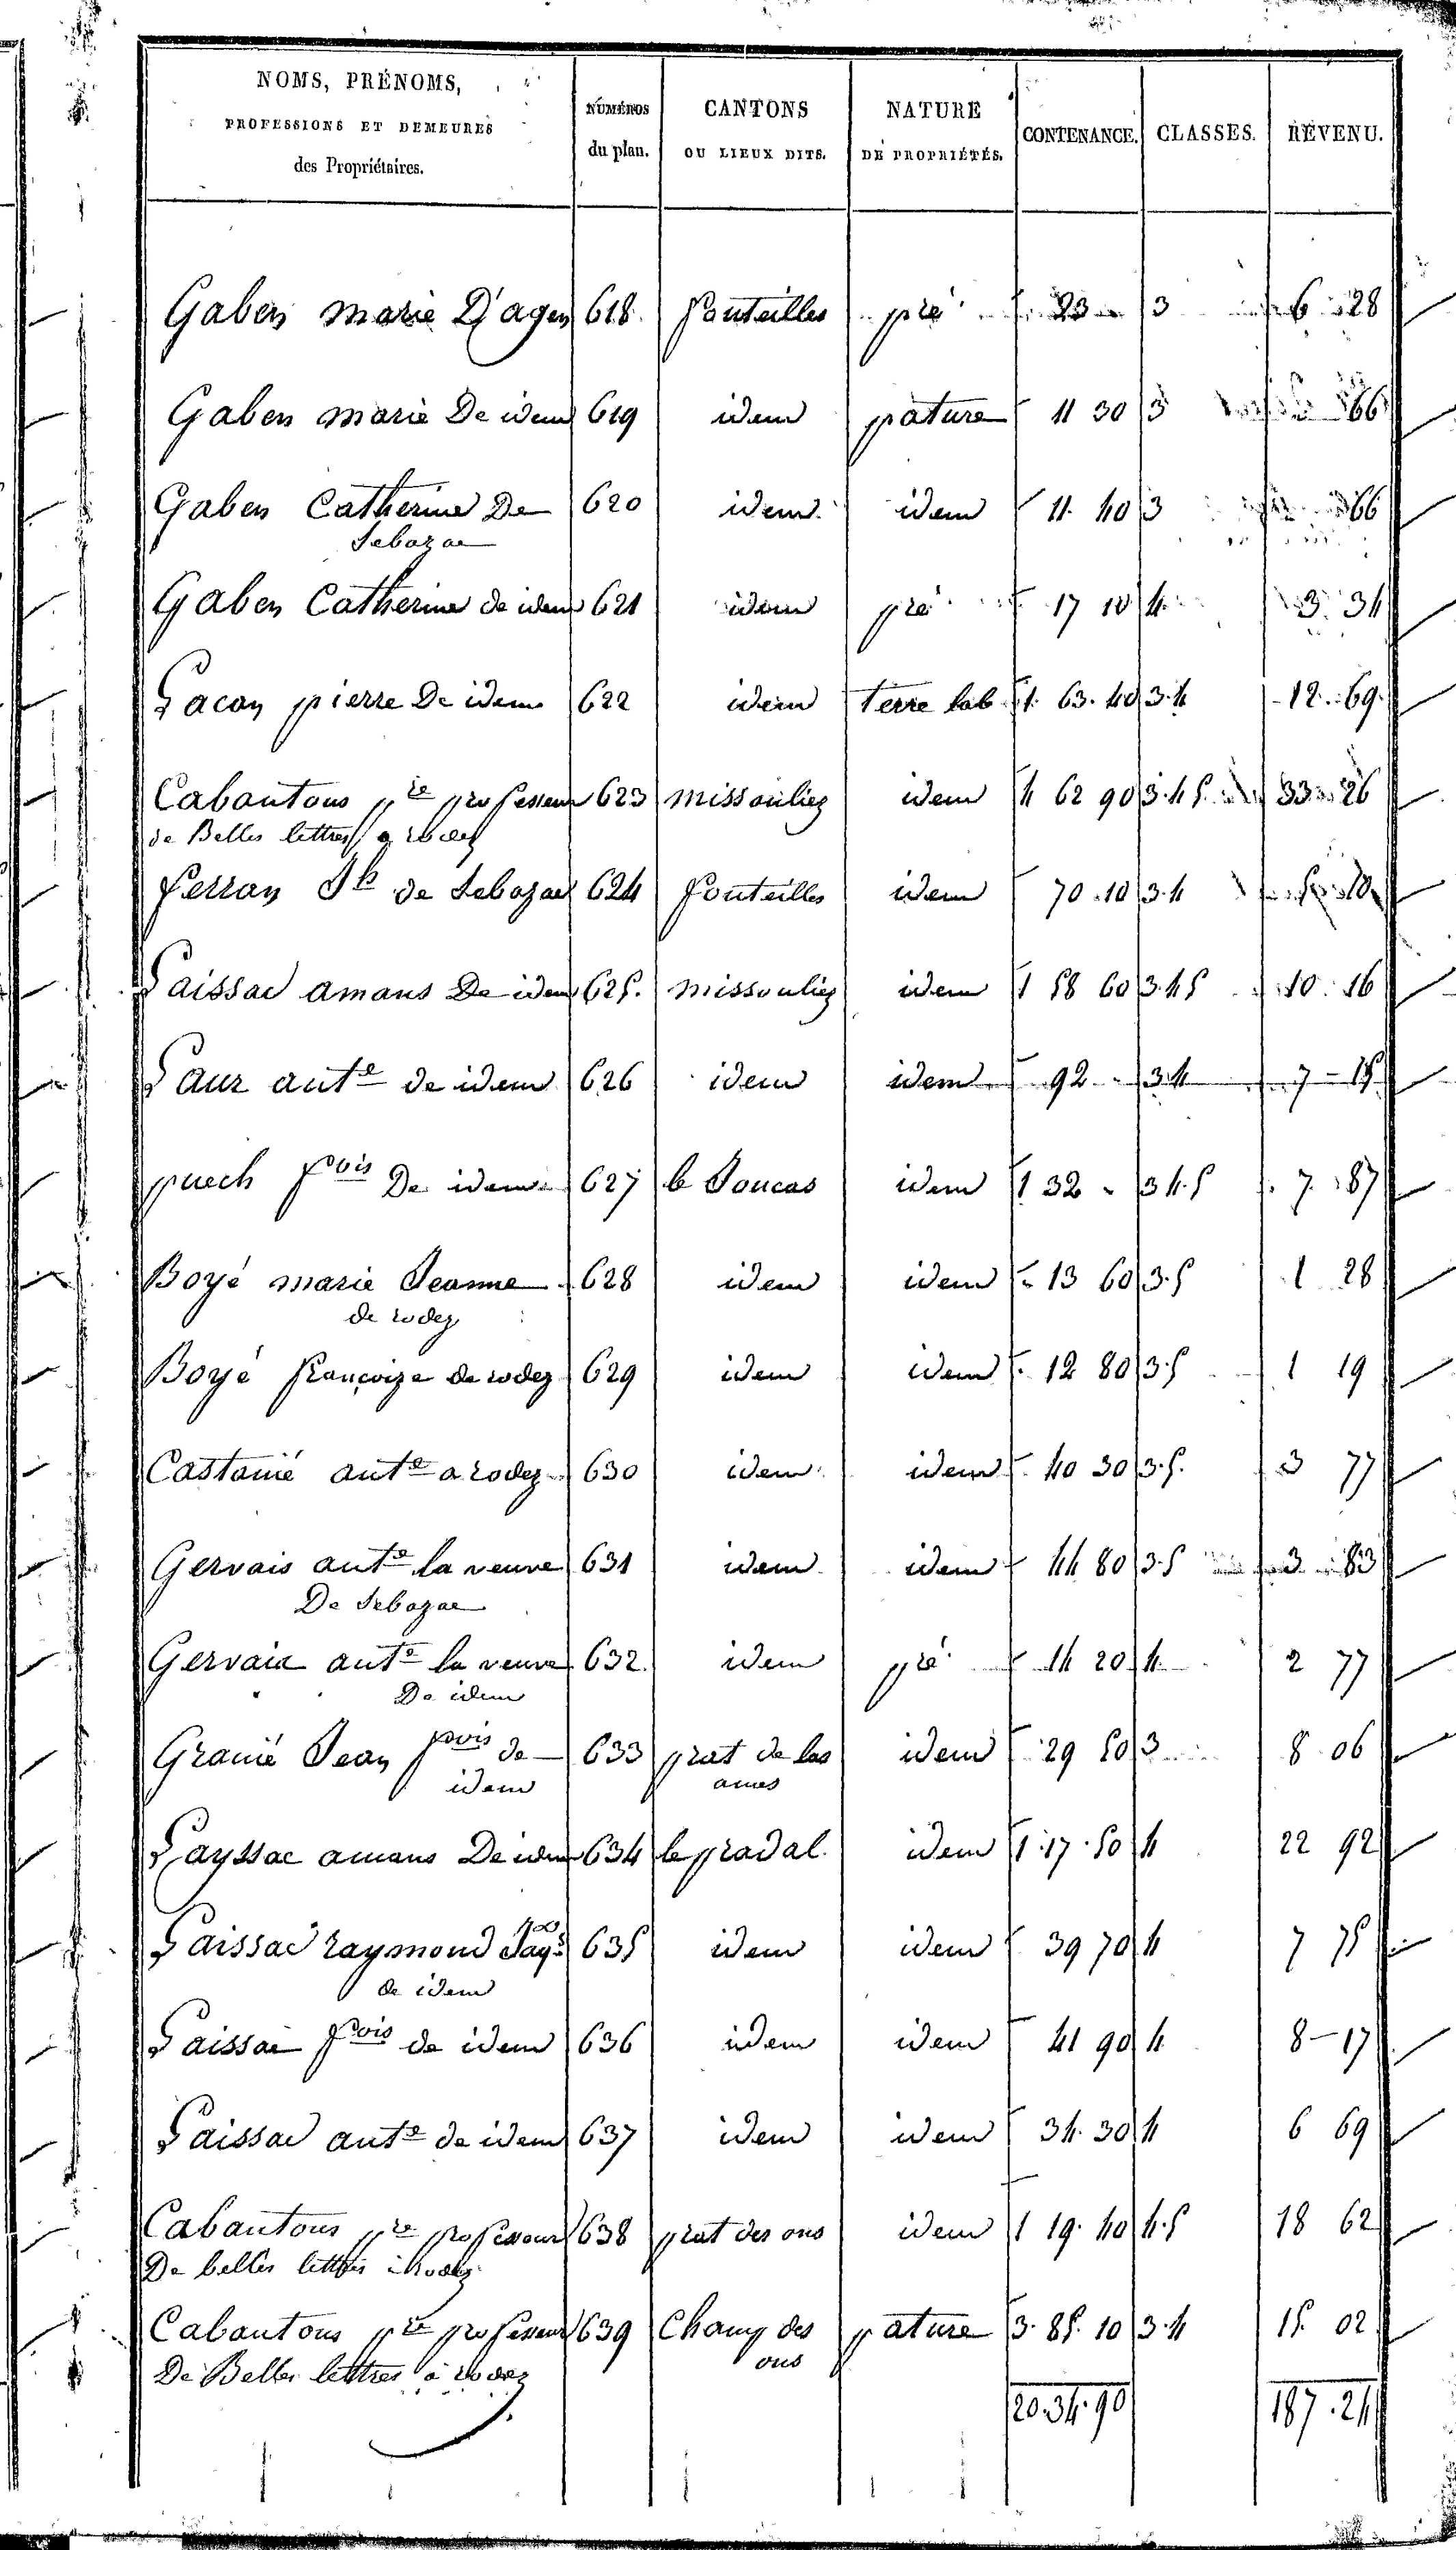 NOMS, PRÉNOMS,
PROFESSIONS ET DEMEURES
des Propriétaires.
NUMÉROS
du plan.
CANTONS
OU LIEUX DITS.
NATURE
DE PROPRIÉTÉS.
CONTENANCE.
CLASSES.
REVENU.
Gaben marie D'agen 618. fonteilles pré 23 3 6 28
Gaben marie De idem 619 idem pature 11 30 3 66
Gaben Catherine De 620 idem idem 11 40 3 66
Sebazac
Gaben Catherine de idem 621 idem pré 17 10 4 3 34
Lacan pierre De idem 622 idem terre lab 1. 63. 40 3.4 12. 69.
Cabantous pre professeur 623 missouliez idem 4 62 90 3.4 5. 33 26
de Belles lettres a rodez
ferran Jh de Sebazac 624 fonteilles idem 70. 10 3.4
Laissac amans De idem 625. missouliez idem 1 58 60 3.4 5 10. 16
Laur ante de idem 626 idem idem 92 3 4 7 15
puech fois De idem 627 le Joucas idem 1 32 3 4.5 7. 87
Boyé marie Jeanne 628 idem idem 13 60 3.5 1 28
de rodez
Boyé françoize de rodez 629 idem idem 12 80 3.5 1 19
Castanié ante a rodez 630 idem idem 40 30 3.5. 3 77
Gervais ante la veuve 631 idem idem 44 80 3.5 3 83
De Sebazac
Gervais ante la veuve 632. idem pré 14 20 4. 2 77
De idem
Granié Jean fois de 633 prat de las idem 29 50 3 8 06
idem ames
Layssac amans De idem 634 le pradal. idem 1. 17. 50 4 22 92
Laissac raymond 635 idem idem 39 70 4 7 75
de idem
Laissac fois de idem 636 idem idem 41 90 4 8 17
Laissac ante de idem 637 idem idem 34. 30 4 6 69
Cabantous pre professeur 638 prat des ons idem 1 19. 40 4.5 18 62
De belles lettres à Rodez
Cabantous pre professeur 639 Champ des pature 3. 85. 10 3.4 15. 02
De Belles lettres à rodez ons
20. 34. 90 187. 24